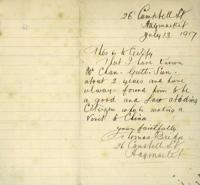 26 Campbell St
Haymarket
July 13. 1917
This is to Certify
that I have known
Mr Chan
about 2 years and have
always found him to be
a good and Law abiding
Citizen
Visit to China
yours faithfully
26 Campbell St
Haymarket